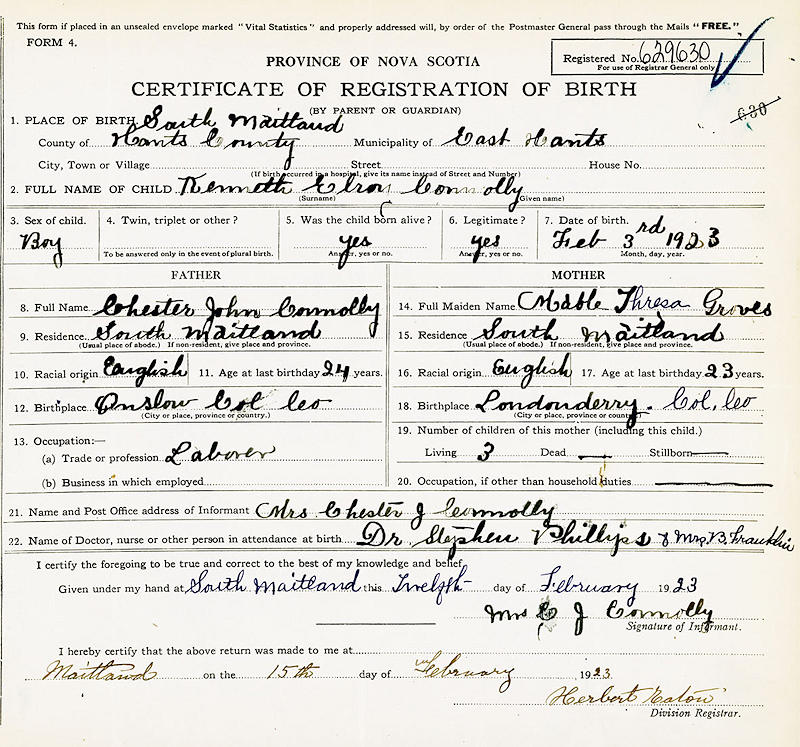 This form if placed in an unsealed envelope marked "Vital Statistics" and properly addressed will, by order of the Postmaster General pass through the Mails "FREE."
FORM 4.
PROVINCE OF NOVA SCOTIA
Registered No. 629630
For use of Registrar General only
CERTIFICATE OF REGISTRATION OF BIRTH
(BY PARENT OR GUARDIAN)
630
1. PLACE OF BIRTH South Maitland
County of Hants County Municipality of East Hants
City, Town or Village Street House No.
(If birth occurred in a hospital, give its name instead of Street and Number)
2. FULL NAME OF CHILD Kenneth Elroy Connolly
(Surname) (Given name)
3. Sex of child. 4. Twin, triplet or other? 5. Was the child born alive? 6. Legitimate? 7. Date of birth.
Boy yes yes Feb 3rd 1923
To be answered only in the event of plural birth. Answer, yes or no. Answer, yes or no. Month, day, year.
FATHER MOTHER
8. Full Name Chester John Connolly 14. Full Maiden Name Mable Thresa Groves
9. Residence South Maitland 15. Residence South Maitland
(Usual place of abode.) If non-resident, give place and province. (Usual place of abode.) If non-resident, give place and province.
10. Racial origin English 11. Age at last birthday 24 years. 16. Racial origin English 17. Age at last birthday 23 years.
12. Birthplace Onslow Col Co 18. Birthplace Londonderry. Col, Co
(City or place, province or country.) (City or place, province or country)
13. Occupation:— 19. Number of children of this mother (including this child.)
(a) Trade or profession Laborer Living 3 Dead — Stillborn —
(b) Business in which employed 20. Occupation, if other than household duties
21. Name and Post Office address of Informant Mrs Chester J Connolly
22. Name of Doctor, nurse or other person in attendance at birth. Dr Stephen Phillips & Mrs. B. Franklin
I certify the foregoing to be true and correct to the best of my knowledge and belief
Given under my hand at South Maitland this Twelfth day of February 1923
Mrs C J Connolly
Signature of Informant.
I hereby certify that the above return was made to me at
Maitland on the 15th day of February 1923
Herbert Eaton
Division Registrar.